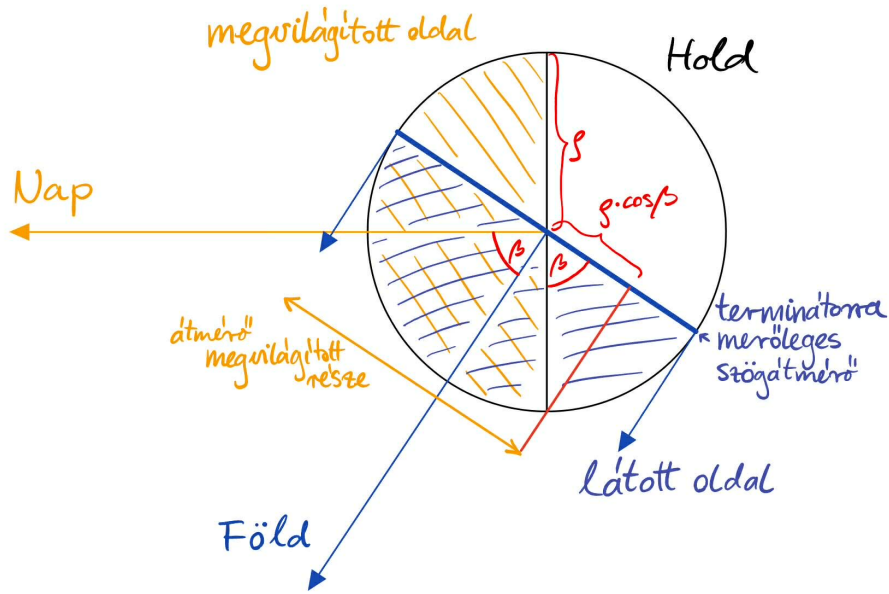 megvilágított oldal
Hold
ρ
Nap
ρ·cosβ
β
β
átmérő
megvilágított
része
terminátorra
merőleges
szögátmérő
látott oldal
Föld